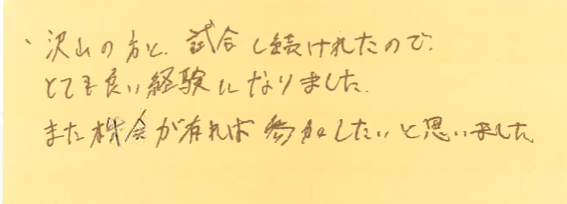 、沢山の方と、試合し続けれたので、
とても良い経験になりました。
また機会が有れば参加したいと思いました